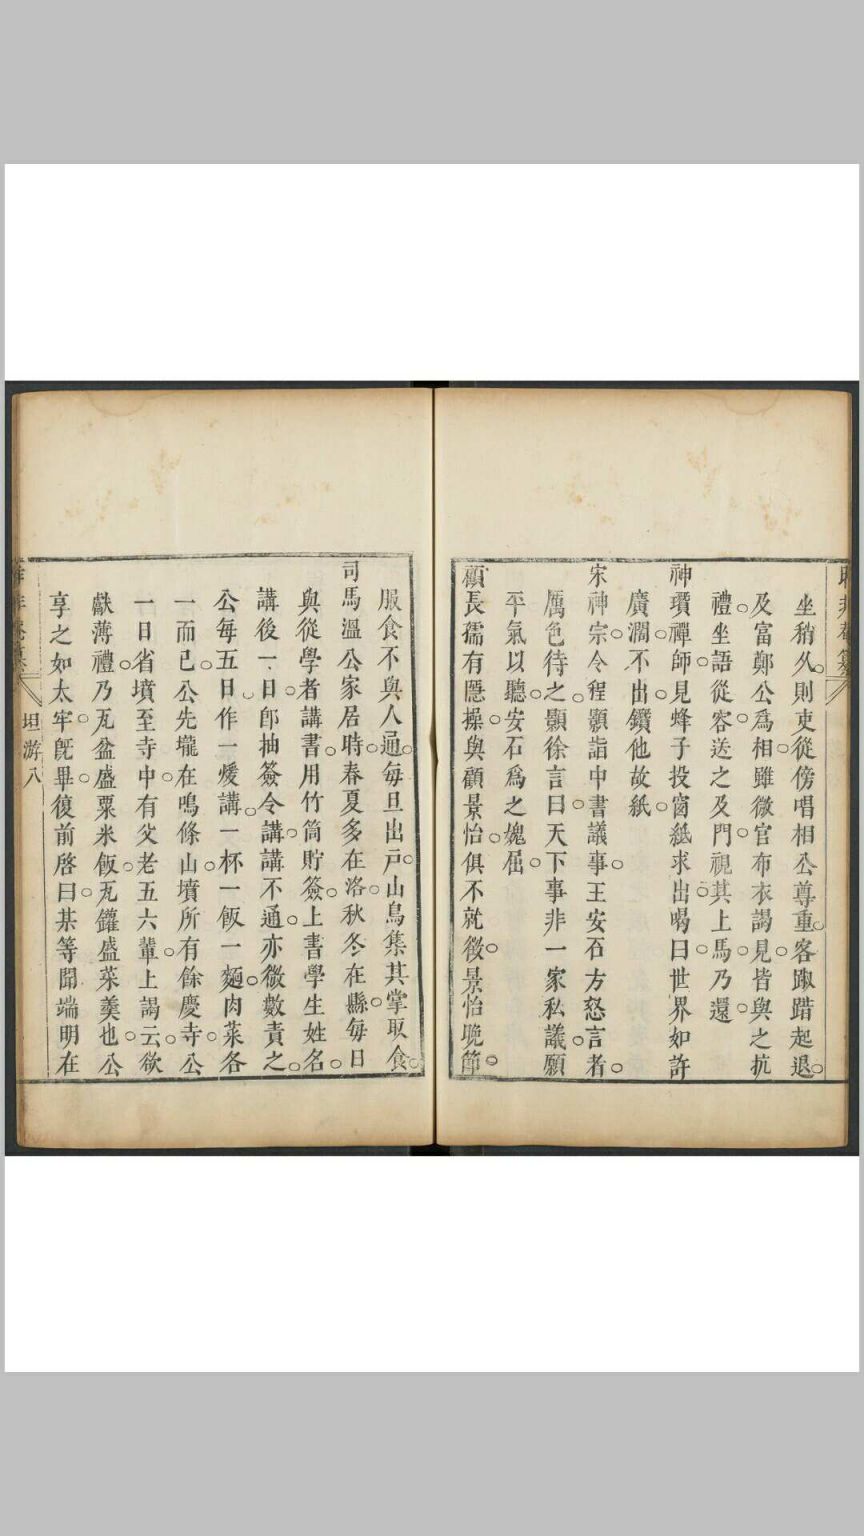 坐稍久則吏從傍唱相公尊重客踧踖起退
及富鄭公為相雖微官布衣謁見皆與之抗
禮坐語從容送之及門視其上馬乃還
神瓚禪師見蜂子投窗紙求出喝曰世界如許
廣濶不出鑽他故紙
宋神宗令程顥詣中書議事王安石方怒言者
厲色待之顥徐言曰天下事非一家私議願
平氣以聽安石為之媿屈
顧長孺有隱操與顧景怡俱不就徵景怡晚節
服食不與人通每旦出戶山鳥集其掌取食
司馬溫公家居時春夏多在洛秋冬在縣每日
與從學者講書用竹筒貯簽上書學生姓名
講後一日卽抽簽令講講不通亦微數責之
公每五日作一煖講一杯一飯一麵肉菜各
一而已公先壠在鳴條山墳所有餘慶寺公
一日省墳至寺中有父老五六輩上謁云欲
獻薄禮乃瓦盆盛粟米飯瓦鑵盛菜羹也公
享之如太牢旣畢復前啓曰某等聞端明在
坦游八